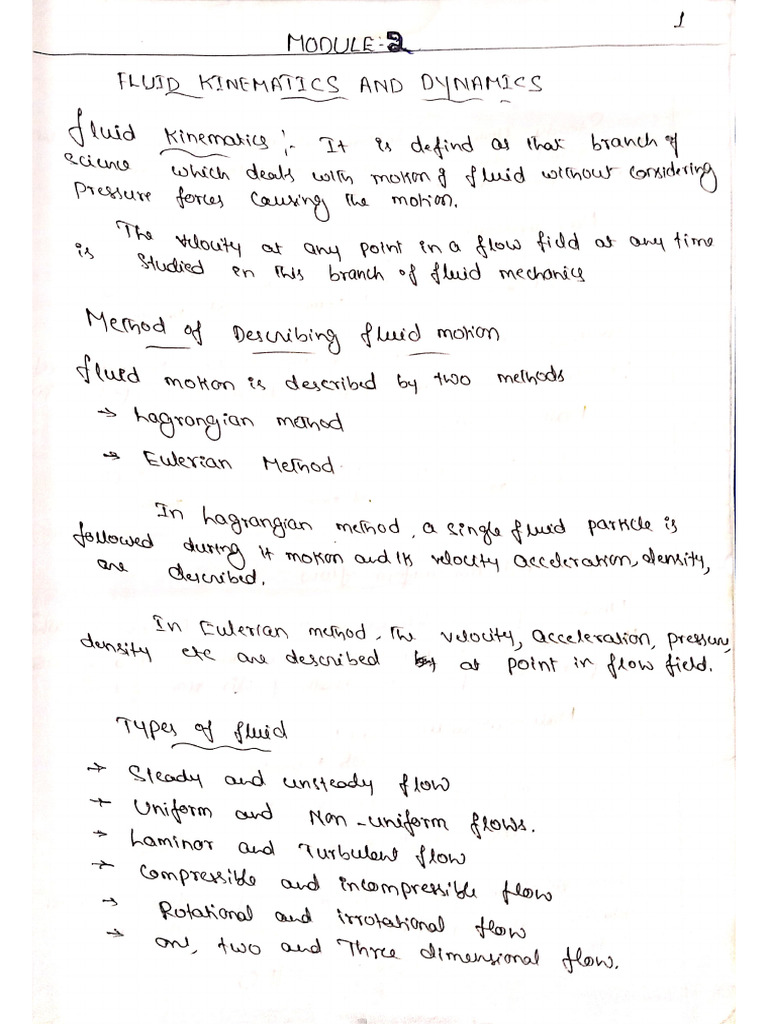 1
MODULE:2
FLUID KINEMATICS AND DYNAMICS
fluid Kinematics :- It is defind as that branch of
science which deals with motion of fluid without considering
pressure forces causing the motion.
The velocity at any point in a flow field at any time
is studied in this branch of fluid mechanics
Method of Describing fluid motion
fluid motion is described by two methods
→ Lagrangian method
→ Eulerian Method.
In Lagrangian method, a single fluid particle is
followed during it motion and its velocity acceleration, density,
are described.
In Eulerian method, the velocity, acceleration, pressure,
density etc are described at point in flow field.
Types of fluid
→ Steady and unsteady flow
→ Uniform and Non-uniform flows.
→ Laminar and Turbulent flow
→ Compressible and incompressible flow
→ Rotational and irrotational flow
→ one, two and Three dimensional flow.